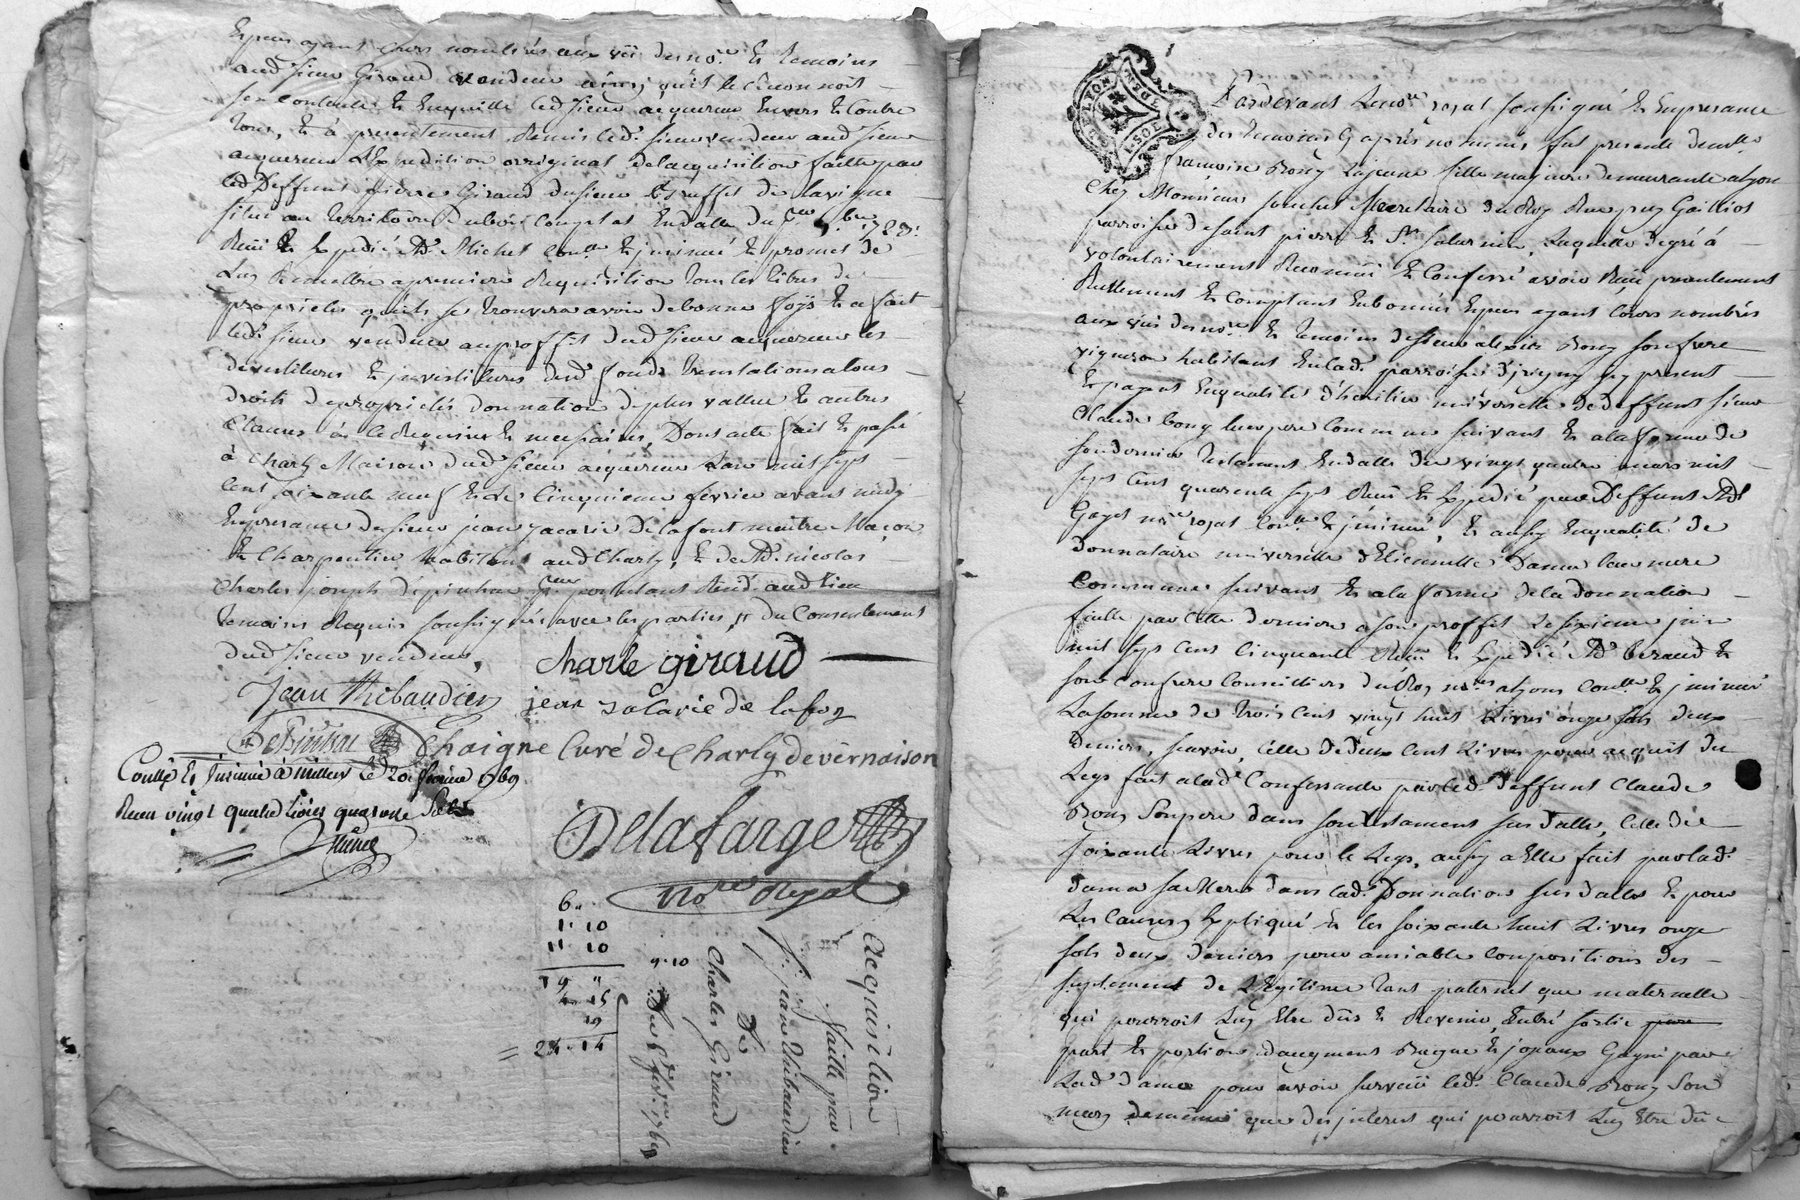 Especes ayant cours nombrés aux vüe desno.re Et temoins
aud Sieur Giraud vendeur ainsi qu'il le reconnoit
sen Contente Et Enquitte led Sieur acquereur Envers Et Contre
tous, Et à presentement remis led.t Sieur vendeur aud Sieur
acquereur L'Expedition original delacquisition faitte par
led Deffunt pierre Giraud du Sieur Truffet de lavigne
situé au territoire dubois Comptal Endatte du 9.bre 1723.
Reçu Et Expedié M.e Michel Con.llé Et jnsinué Et promet de
Luy Remettre apremiere Requisition tous les titres de
proprietés quils se trouvera avoir debonne foÿ Et a fait
led.t Sieur vendeur auproffit dud Sieur acquereur les
devestitures Et jnvestitures dud fonds translations atous
droits depropriétés, donnation deplus vallue Et autres
Clauses à ce Requises Et necessaires, Dont acte fait Et passé
à Charly Maison dud Sieur acquereur Lan mil sept
cent soixante neuf Et le Cinquieme fevrier avant midy
Enpresence desieur jean zacarie Delafont maitre Maçon
Et Charpentier habitant aud Charly, Et de M.e nicolas
Charles joseph Depinhac pour lautant Resid.t aud lieu
temoins Requis soussignés avec les parties, du Consentement
dud Sieur vendeur,
Charle giraud
Jean Thibaudier
jean zacarie de lafon
Depinhac
Chaigne Curé de Charly devernaison
Con.llé Et Jnsinué à millery Le 20 fevrier 1769
Reçu vingt quatre livres quatorze sols
Delafarge
No.re Royal
6 "
1 " 10
11 " 10
19 "
4 " 15
19
= 24 " 14
Acquisition
faitte par
S.r jean thibaudier
De
Charles Giraud
9 " 10
Du 5 fev. 1769
G. DE LYON
1. SOL
Pardevant Leno.re royal soussigné Et Enpresence
des temoins Cy après nommés fut presente demelle
françoise Bony Lajeune fille majeure demeurante alyon
Chés Monsieur souchet Secretaire duRoy Rue puy Gaillot
parroisse desaint pierre Et S.t Saturnin, Laquelle degré à
volontairement Reconnu Et Confessé avoir Reçu presentement
Reellement Et Comptant Enbonnes Especes ayant Cours nombrés
aux vües desno.re Et temoins deSieur Bony sonfrere
vigneron habitant Enlad.t parroisse d'jrigny icy present
Et payant Enqualité d'heritier universelle de Deffunt Sieur
Claude bony leur pere Commun suivant Et ala forme de
sondernier testament Endatte du vingt quatre mars mil
sept Cent quarente sept Reçu Et Expedié par Deffunt M.e
Gayet no.re royal Con.llé Et jnsinué, Et aussy Enqualité de
donnataire universelle d'Etiennette Dama leur mere
Commune suivant Et ala forme de la donnation
faitte par Cette derniere ason proffit Le sixieme juin
mil sept Cent Cinquante Reçu Et Expedié M.e beraud Et
son confrere Conseillers duRoy no.res alyon Con.llé Et jnsinué
Lasomme de trois Cent vingt huit Livres onze sols deux
Deniers, scavoir, Celle dedeux Cent Livres pour acquit du
Legs fait alad.t Confessante parled Deffunt Claude
Bony Sonpere dans sontestament sus datté, Celle de
soixante Livres pour le Legs, aussy aElle fait parlad.t
dama sa Mere dans lad.t Donnation sus datté Et pour
Les Causes y Expliqué Et les soixante huit Livres onze
sols deux Deniers pour amiable Compositions des
suplement de Legitime tant paternel que maternelle
qui pourroit Luy Etre dûs Et Revenir, Entré sortie
part Et portion daugment Bague Et joyaux Gagné par
Lad.t Dama pour avoir survecu led.t Claude Bony Son
mary demême que des jnterest qui pourroit Luy Etre dû